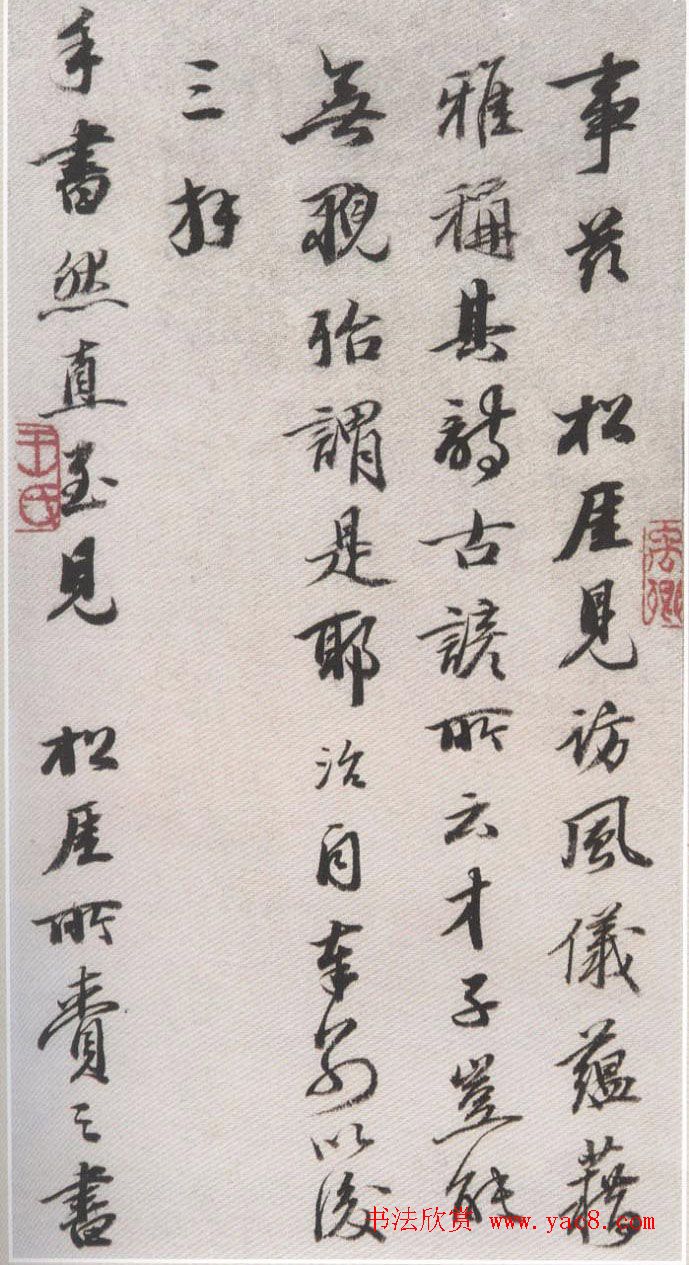 事茲　松厓見訪風儀蘊藉
雅稱其詩古諺所云才子豈能
無覯殆謂是耶治自奉别以後
三拜
手書然直至見　松厓所賫之書
王氏
书法欣赏 www.yac8.com